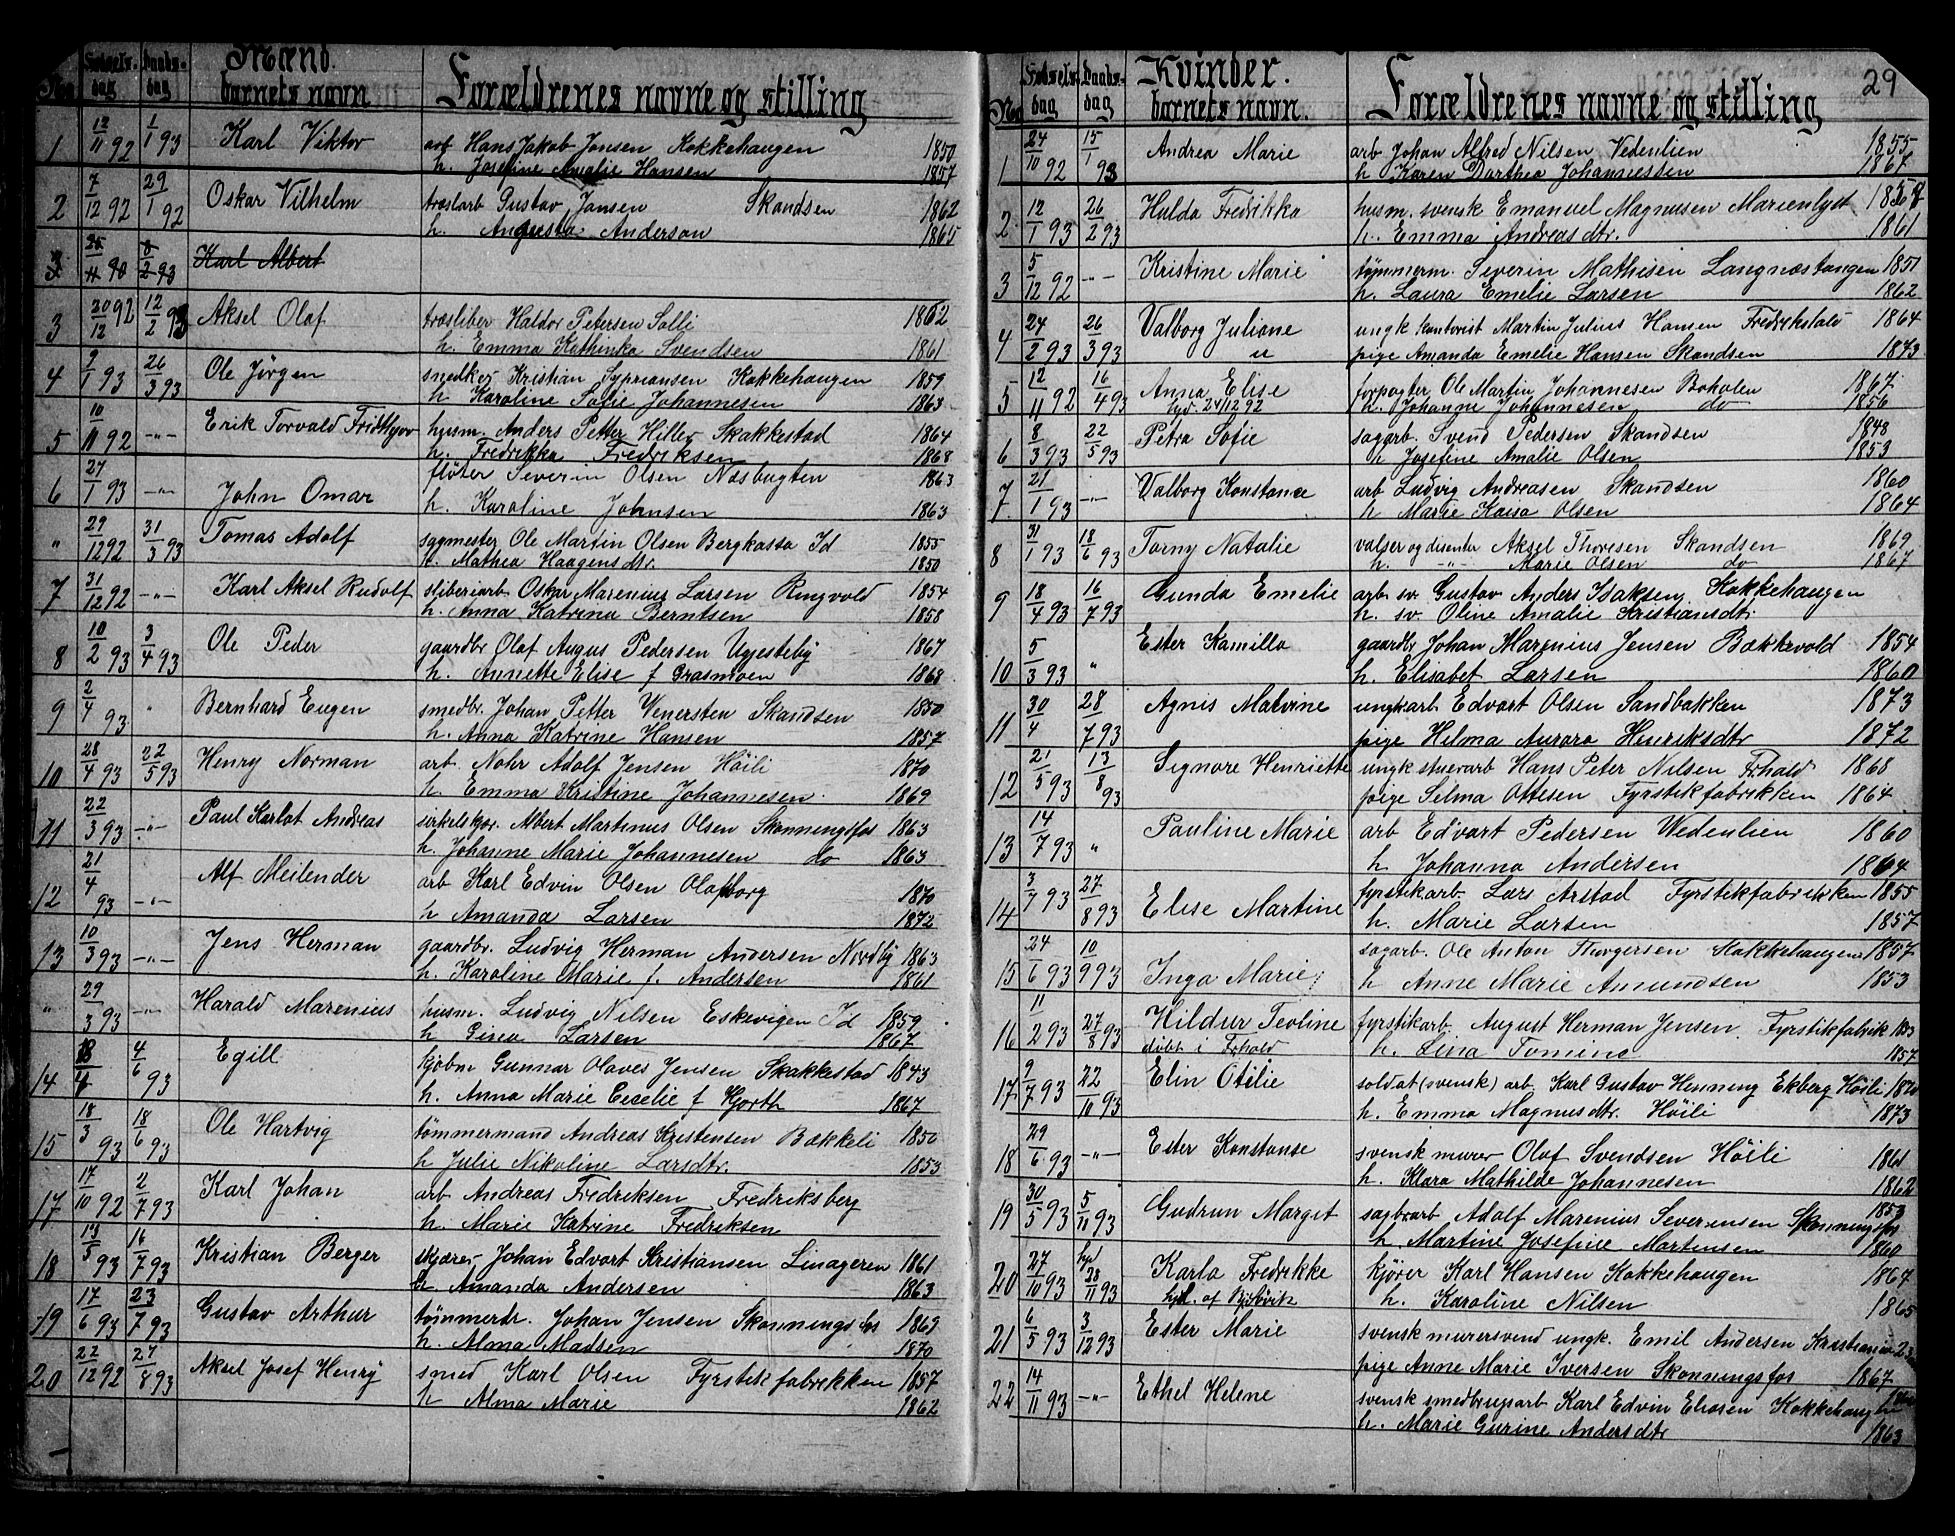 Mænd.
No Fødsels-dag Daabs-dag barnets navn Forældrenes navne og stilling
1 12/11 92 1/1 93 Karl Viktor arb Hans Jakob Jonsen Kokkehaugen 1850
h. Josefine Amalie Hansen 1857
2 7/12 92 29/1 92 Oskar Vilhelm træslarb Gustav Jansen Skandsen 1862
h. Augusta Anderson 1865
3 90 8/2 93 Karl Albert
3 20/12 92 12/2 93 Aksel Olaf træsliber Haldor Petersen Solli 1862
h. Emma Kathinka Svendsen 1861
4 9/1 93 26/3 93 Ole Jörgen smedker Kristian Sypriansen Kokkehaugen 1859
h Karoline Sofie Johannesen 1863
5 10/11 92 -"- Erik Torvald Fridthjov husm. Anders Petter Hiller Skakkestad 1864
h. Fredrikka Fredriksen 1868
6 27/1 93 -"- John Omar fløter Severin Olsen Næsbugten 1863
h. Karoline Johnsen 1863
" 29/12 92 31/3 93 Tomas Adolf sagmester Ole Martin Olsen Bergkassa Id 1855
h. Mathea Haagensdtr. 1850
7 31/12 92 -"- Karl Aksel Rudolf sliberiarb Oskar Marenius Larsen Ringvold 1854
h. Anna Katrina Berntsen 1858
8 10/2 93 3/4 93 Ole Peder gaardbr Olaf Augus Pedersen Ugesteby 1867
h. Annette Elise f Grasmoen 1868
9 2/4 93 " Bernhard Eugen smedbr. Johan Petter Venersten Skandsen 1850
h. Anna Katrine Hansen 1857
10 28/4 93 22/5 93 Henry Norman arb. Nohr Adolf Jensen Höili 1870
h. Emma Kristine Johannesen 1869
11 22/3 93 -"- Paul Karlot Andreas sirkelskjær. Albert Martinus Olsen Skonningsfos 1863
h. Johanne Marie Johannesen do 1863
12 21/4 93 -"- Alf Meilender arb Karl Edvin Olsen Olafsborg 1870
h Amanda Larsen 1872
13 10/3 93 -"- Jens Herman gaardbr. Ludvig Herman Andersen Nordby 1863
h. Karoline Marie f. Andersen 1861
" 29/3 93 -"- Harald Marenius husm. Ludvig Nilsen Eskevigen Id 1859
h Gina Larsen 1867
14 4/6 93 Egill kjøbm Gunnar Olaves Jensen Skakkestad 1843
h. Anna Marie Cecelie f Hjorth 1867
15 18/3 93 18/6 93 Ole Hartvig tömmermand Andreas Kristensen Bækkeli 1850
h Julie Nikoline Larsdtr. 1853
17 17/10 92 2/7 93 Karl Johan arb Andreas Fredriksen Fredriksberg
h. Marie Katrine Fredriksen
18 13/5 93 16/7 93 Kristian Berger skjærer Johan Edvart Kristiansen Linageren 1861
h. Amanda Andersen 1863
19 17/6 93 23/7 93 Gustav Arthur tømmerdr. Johan Jensen Skonningsfos 1869
h. Alma Madsen 1870
20 22/12 92 27/8 93 Aksel Josef Henry smed Karl Olsen Fyrstikfabrikken 1857
h Alma Marie 1862
29
Kvinder.
No Fødsels-dag Daabs-dag barnets navn. Forældrenes navne og stilling
1 24/10 92 15/1 93 Andrea Marie arb Johan Alfred Nilsen Vedenlien 1855
h Karen Dorthea Johannessen 1867
2 12/1 93 26/2 93 Hulda Fredrikka husm. svensk Emanuel Magnusen Marienlyst 1858
h. Emma Andreasdtr. 1861
3 5/12 92 -"- Kristine Marie tømmerm. Severin Mathisen Langnæstangen 1851
h. Laura Emelie Larsen 1862
4 24/2 93 26/3 93 Valborg Juliane ungk kontorist Martin Julius Hansen Fredrikstad 1864
u pige Amanda Emelie Hansen Skandsen 1873
5 12/11 92 16/4 93 Anna Elise forpagter Ole Martin Johannesen Boholen 1867
hjd. 24/12 92 h. Johanne Johannesen do 1856
6 8/3 93 22/5 93 Petra Sofie sagarb. Svend Pedersen Skandsen 1848
h Josefine Amalie Olsen 1853
7 21/1 93 -"- Valborg Konstance arb Ludvig Andreasen Skandsen 1860
h Marie Kaisa Olsen 1864
8 31/1 93 18/6 93 Torny Natalie valser og disenter Aksel Thoresen Skandsen 1869
h. -"- Marie Olsen do 1867
9 18/4 93 16/7 93 Gunda Emelie arb. sv. Gustav Anders Isaksen Kokkehaugen
h. sv. Oline Amalie Kristiansdtr
10 5/3 93 " Ester Kamilla gaardbr Johan Marenius Jensen Bækkevold 1854
h. Elisabet Larsen 1860
11 30/4 28/7 93 Agnis Malvine ungkarb Edvart Olsen Sandbakken 1873
pige Hilma Aurora Henriksdtr 1872
12 21/5 93 13/8 93 Signore Henriette ungk stuerarb Hans Peter Nilsen Frhald 1868
pige Selma Ottesen Fyrstikfabrikken 1864
13 14/7 93 " Pauline Marie arb Edvart Pedersen Wedenlien 1860
h Johanna Andersen 1864
14 3/7 93 27/8 93 Elise Martine fyrstikarb. Lars Arstad Fyrstikfabrikken 1855
h. Marie Larsen 1857
15 24/6 93 10/9 93 Inga Marie sagarb. Ole Anton Thorgersen Kokkehaugen 1857
h Anne Marie Amundsen 1853
16 11/2 93 27/8 93 Hildur Teoline fyrstikarb. August Herman Jensen Fyrstikfabrik 1853
døbt i Frhald h. Lina Tomine 1857
17 9/7 93 22/10 93 Elin Otilie soldat (svensk) arb. Karl Gustav Henning Ekberg Höili 1870
h. Emma Magnusdtr. Höili 1873
18 29/6 93 -"- Ester Konstanse svensk murer Olof Svendsen Höili 1861
h. Klara Mathilde Johannesen 1862
19 30/5 93 5/11 93 Gudrun Margit sagbrarb Adolf Marenius Severinsen Skonningsfos 1853
h. Martine Josefine Martinsen 1860
20 27/10 93 hjd 28/11 93 Karla Fredrikke kjører Karl Hansen Kokkehaugen 1867
hjd. af Bjölvik h. Karoline Nilsen 1865
21 6/5 93 3/12 93 Ester Marie svensk murersvend ungk. Emil Andersen Kristiania
pige Anne Marie Iversen Skonningsfos 1867
22 14/11 93 -"- Ethel Helene svensk smedbrugsarb Karl Edvin Eliasen Kokkehaugen
h. Marie Gurine Andersdtr 1863